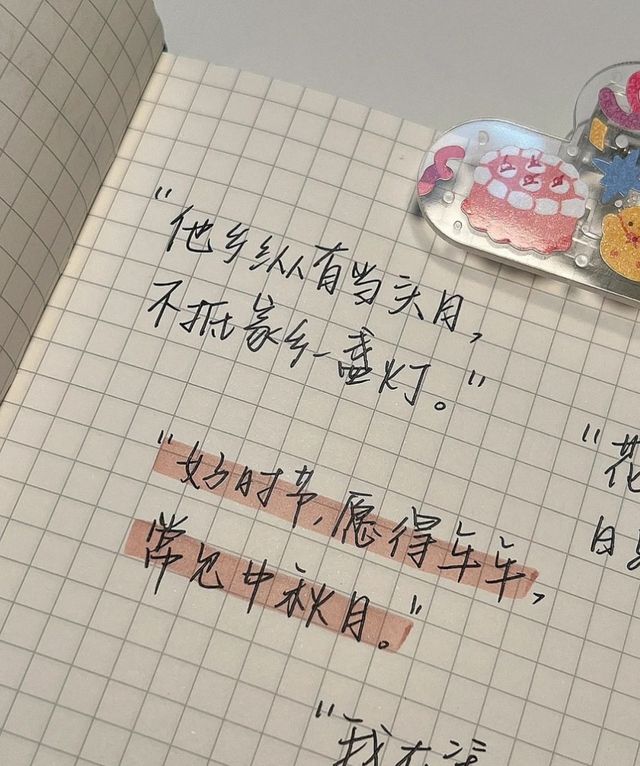 "他乡纵有当头月，
不抵家乡一盏灯。"
"好时节，愿得年年，
常见中秋月。"
"花
日
"我